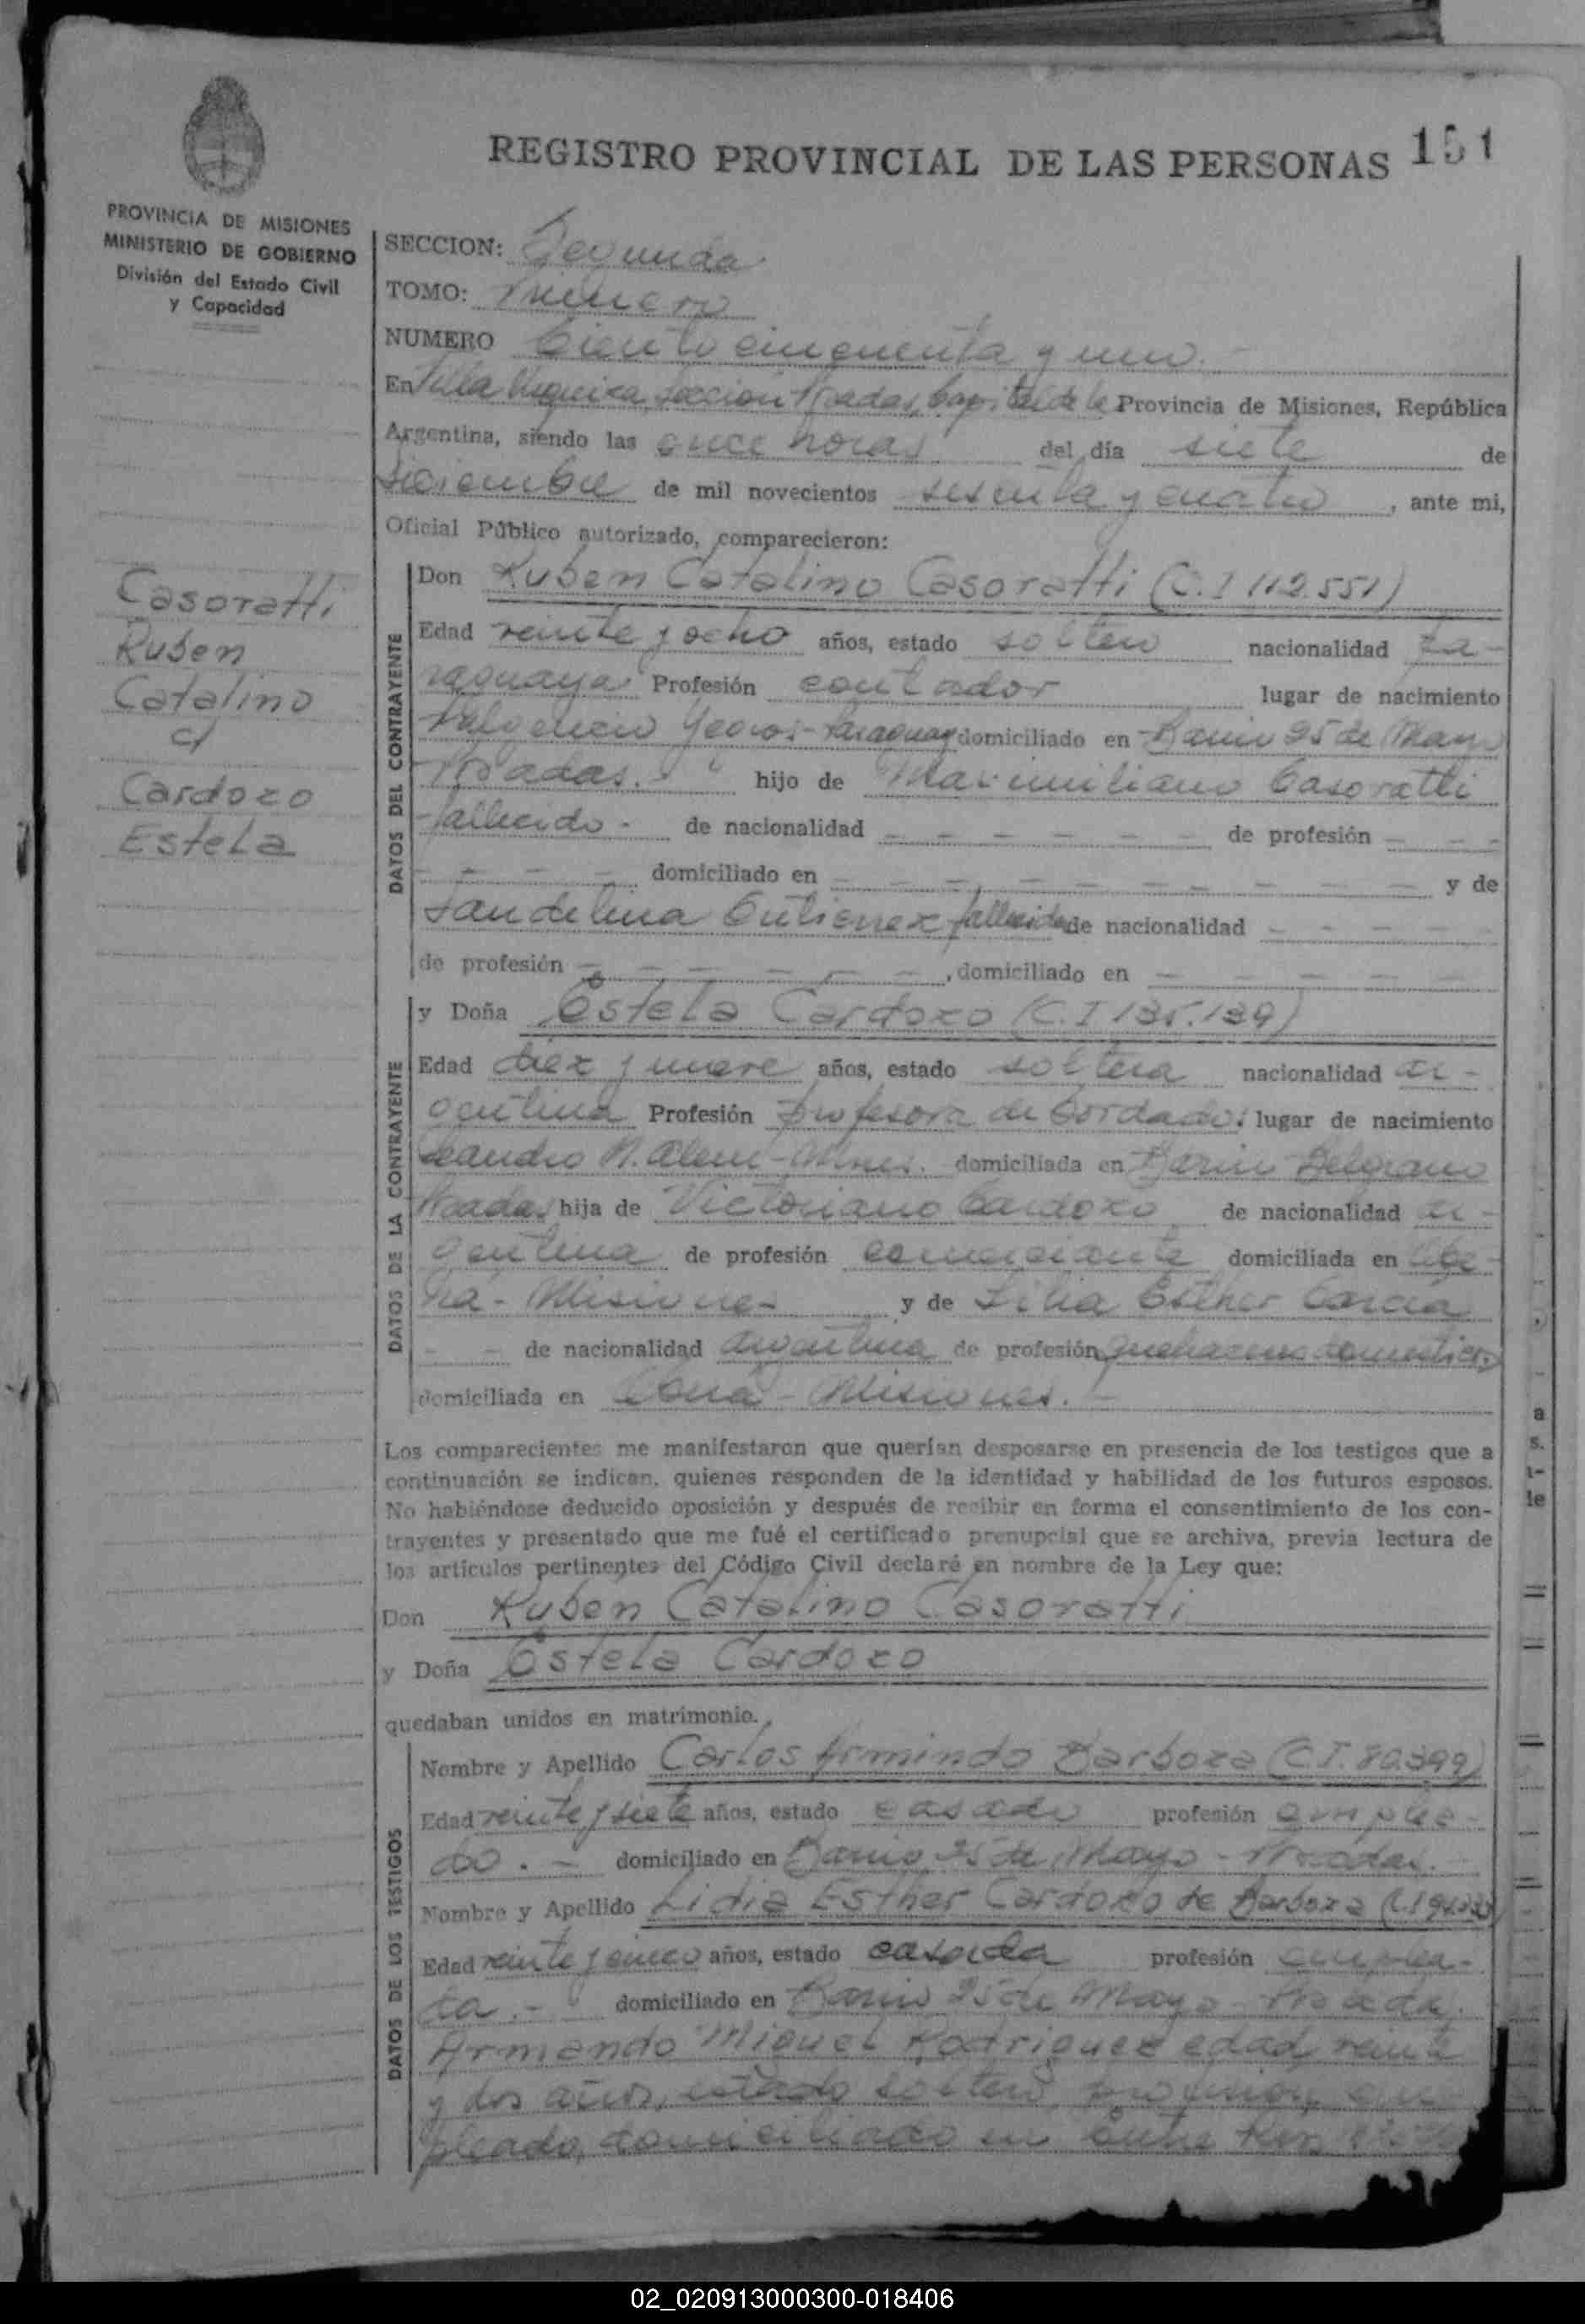 REGISTRO PROVINCIAL DE LAS PERSONAS 151
PROVINCIA DE MISIONES
MINISTERIO DE GOBIERNO
División del Estado Civil
y Capacidad
SECCION: Segunda
TOMO: Primero
NUMERO Ciento cincuenta y uno.
En Villa Urquiza, Sección Posadas, Capital de la Provincia de Misiones, República
Argentina, siendo las once horas del día siete de
diciembre de mil novecientos sesenta y cuatro, ante mi,
Oficial Público autorizado, comparecieron:
Casoratti
Ruben
Catalino
c/
Cardozo
Estela
DATOS DEL CONTRAYENTE
Don Ruben Catalino Casoratti (C.I 112.551)
Edad veinte y ocho años, estado soltero nacionalidad Pa-
raguaya Profesión contador lugar de nacimiento
Fulgencio Yegros-Paraguay domiciliado en Barrio 25 de Mayo
Posadas. hijo de Maximiliano Casoratti
fallecido - de nacionalidad - - - - - - de profesión - - -
- - - - domiciliado en - - - - - - - - - y de
Gutierrez fallecida de nacionalidad - - - - -
de profesión - - - - - - , domiciliado en - - - - -
DATOS DE LA CONTRAYENTE
y Doña Estela Cardozo (C.I 135.139)
Edad diez y nueve años, estado soltera nacionalidad ar-
gentina Profesión profesora de bordado. lugar de nacimiento
Leandro N. Alem-Mnes. domiciliada en Barrio Belgrano
Posadas hija de Victoriano Cardozo de nacionalidad ar-
gentina de profesión comerciante domiciliada en
- Misiones y de Lilia Esther Garcia
- - de nacionalidad argentina de profesión quehaceres domesticos
domiciliada en - Misiones. -
Los comparecientes me manifestaron que querían desposarse en presencia de los testigos que a
continuación se indican, quienes responden de la identidad y habilidad de los futuros esposos.
No habiéndose deducido oposición y después de recibir en forma el consentimiento de los con-
trayentes y presentado que me fué el certificado prenupcial que se archiva, previa lectura de
los artículos pertinentes del Código Civil declaré en nombre de la Ley que:
Don Ruben Catalino Casoratti
y Doña Estela Cardozo
quedaban unidos en matrimonio.
DATOS DE LOS TESTIGOS
Nombre y Apellido Carlos Armindo Barboza (C.I. 80.399)
Edad veinte y siete años, estado casado profesión emplea-
do. - domiciliado en Barrio 25 de Mayo - Posadas.
Nombre y Apellido Lidia Esther Cardozo de Barboza
Edad veinte y cinco años, estado casada profesión emplea-
da. - domiciliado en Barrio 25 de Mayo - Posadas.
Armando Miguel Rodriguez edad veinte
y dos años, estado soltero, profesion em-
pleado, domiciliado en Entre Rios
02_020913000300-018406